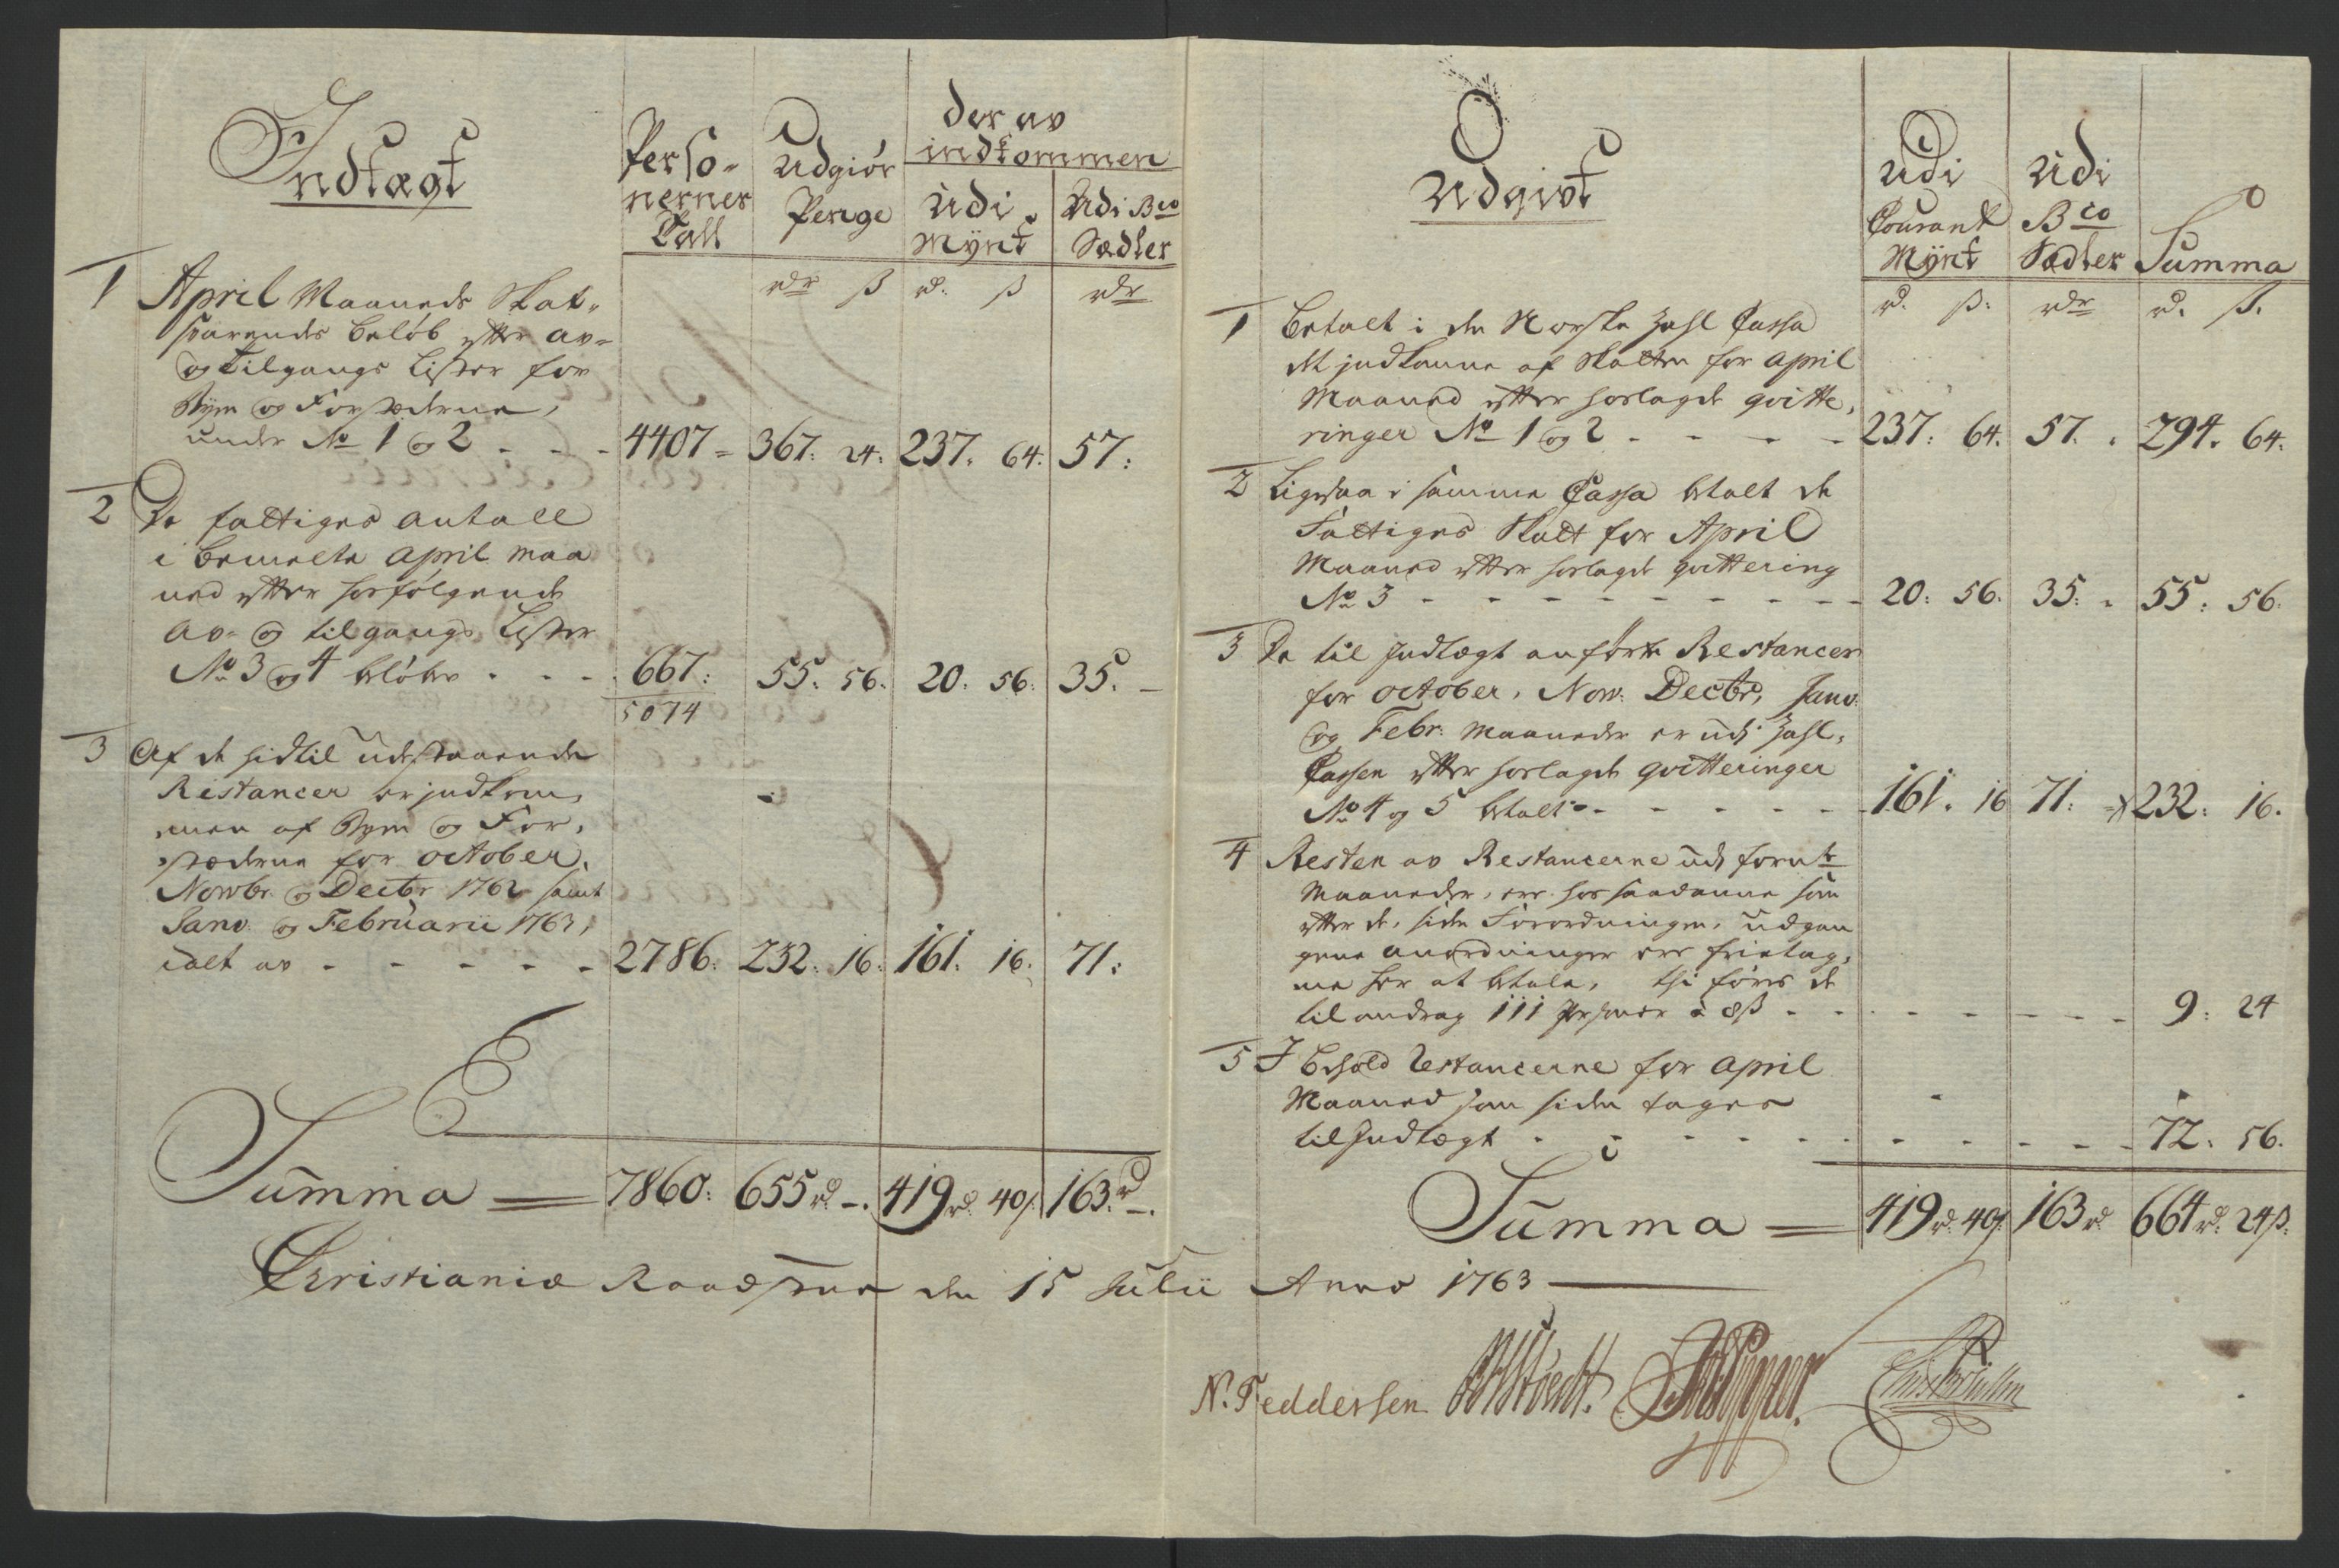 Indtægt
Perso-
nernes
Tall
Udgiør
Penge
der av
indkommen
Udi
Mÿnt
Udi Bco
Sædler
rdr ß rd. ß rdr
1 April Maaneds Skat-
svarendes beløb efter av-
og tilgangs Lister for
Byen og Forstæderne,
under No 1 og 2 - - - 4407 = 367: 24: 237. 64: 57:
2 De fattiges antall
i bemelte April Maa
ned efter hosfølgende
av- og tilgangs Lister
No 3 og 4 beløber . - - 667: 55: 56. 20: 56: 35. -
5074
3 Af de hidtil udestaaende
Restancer er jndkom-
men af Byen og For-
stæderne for october.
Novbr. og Decbr 1762 samt
Janv. og Februarii 1763,
ialt av - - - - - 2786: 232: 16: 161: 16: 71:
Summa = 7860: 655 rd -. 419 rd. 40ß 163. rd -.
Christiania Raadstue den 15 Julii Anno 1763
Udgivt
Udi
Courant
Mÿnt
Udi
Bco
Sædler
Summa
rd. ß: rdr rd. ß.
1 Betalt i den Norske Zahl Cassa
det jndkomne af Skatten for April
Maaned efter hoslagde qvitte-
ringer No 1 og 2 - - - - 237: 64. 57. . 294. 64.
2 Ligesaa i samme Cassa betalt de
Fattiges Skatt for April
Maaned efter hoslagde qvittering
No 3 - - - - - - - - - 20: 56. 35: . 55: 56.
3 De til Jndtægt anførte Restancer
for october, Nov: Decbr, Janv:
og Febr: Maaneder er udj Zahl-
Cassen efter hoslagde qvitteringer
No 4 og 5 betalt - - - - - 161. 16 71: 232: 16.
4 Resten av Restancerne udj fornte
Maaneder, er hos saadanne som
efter de, siden Forordningen, udgan
gene anordninger ere frietag-
ne for at betale, thi føres de
til andrag 111 Personer à 8ß - - - - - - 9: 24
5 J Behold Restancerne for April
Maaned som siden tages
til Jndtægt - - - - - - - - - 72. 56.
Summa = 419 rd. 40ß. 163 rd 664 rd. 24ß.
N. Feddersen